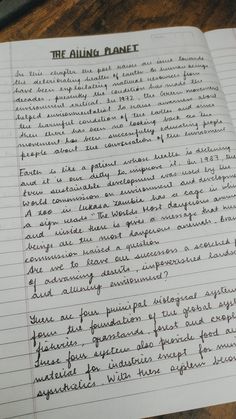 THE AILING PLANET
In this chapter the poet raises an issue towards
the deteriorating health of Earth as human beings
have been exploitating natural resources from
decades, presently the condition has made the
environment critical. In 1972, the Green movement
helped environmentalist to raise awareness about
the harmful condition of the Earth and since
then there has been no looking back as the
movement has been successfully educating people
people about the conservation of the environment
Earth is like a patient whose health is declining
and it is our duty to improve it. In 1987, the
term sustainable development was used by the
World commission on environment and development
A zoo in Lukasa Zambia has a cage in which
a sign reads "The World's most dangerous animal
and inside there is a message that
beings are the most dangerous animals.
commission raised a question
Are we to leave our successors a scorched
of advancing deserts, impoverished lands
and ailing environment?
There are four principal biological systems
form the foundation of the global system
fisheries, grasslands, forest and crop
These four system also provide food
material for industries except for
synthetics. With these system